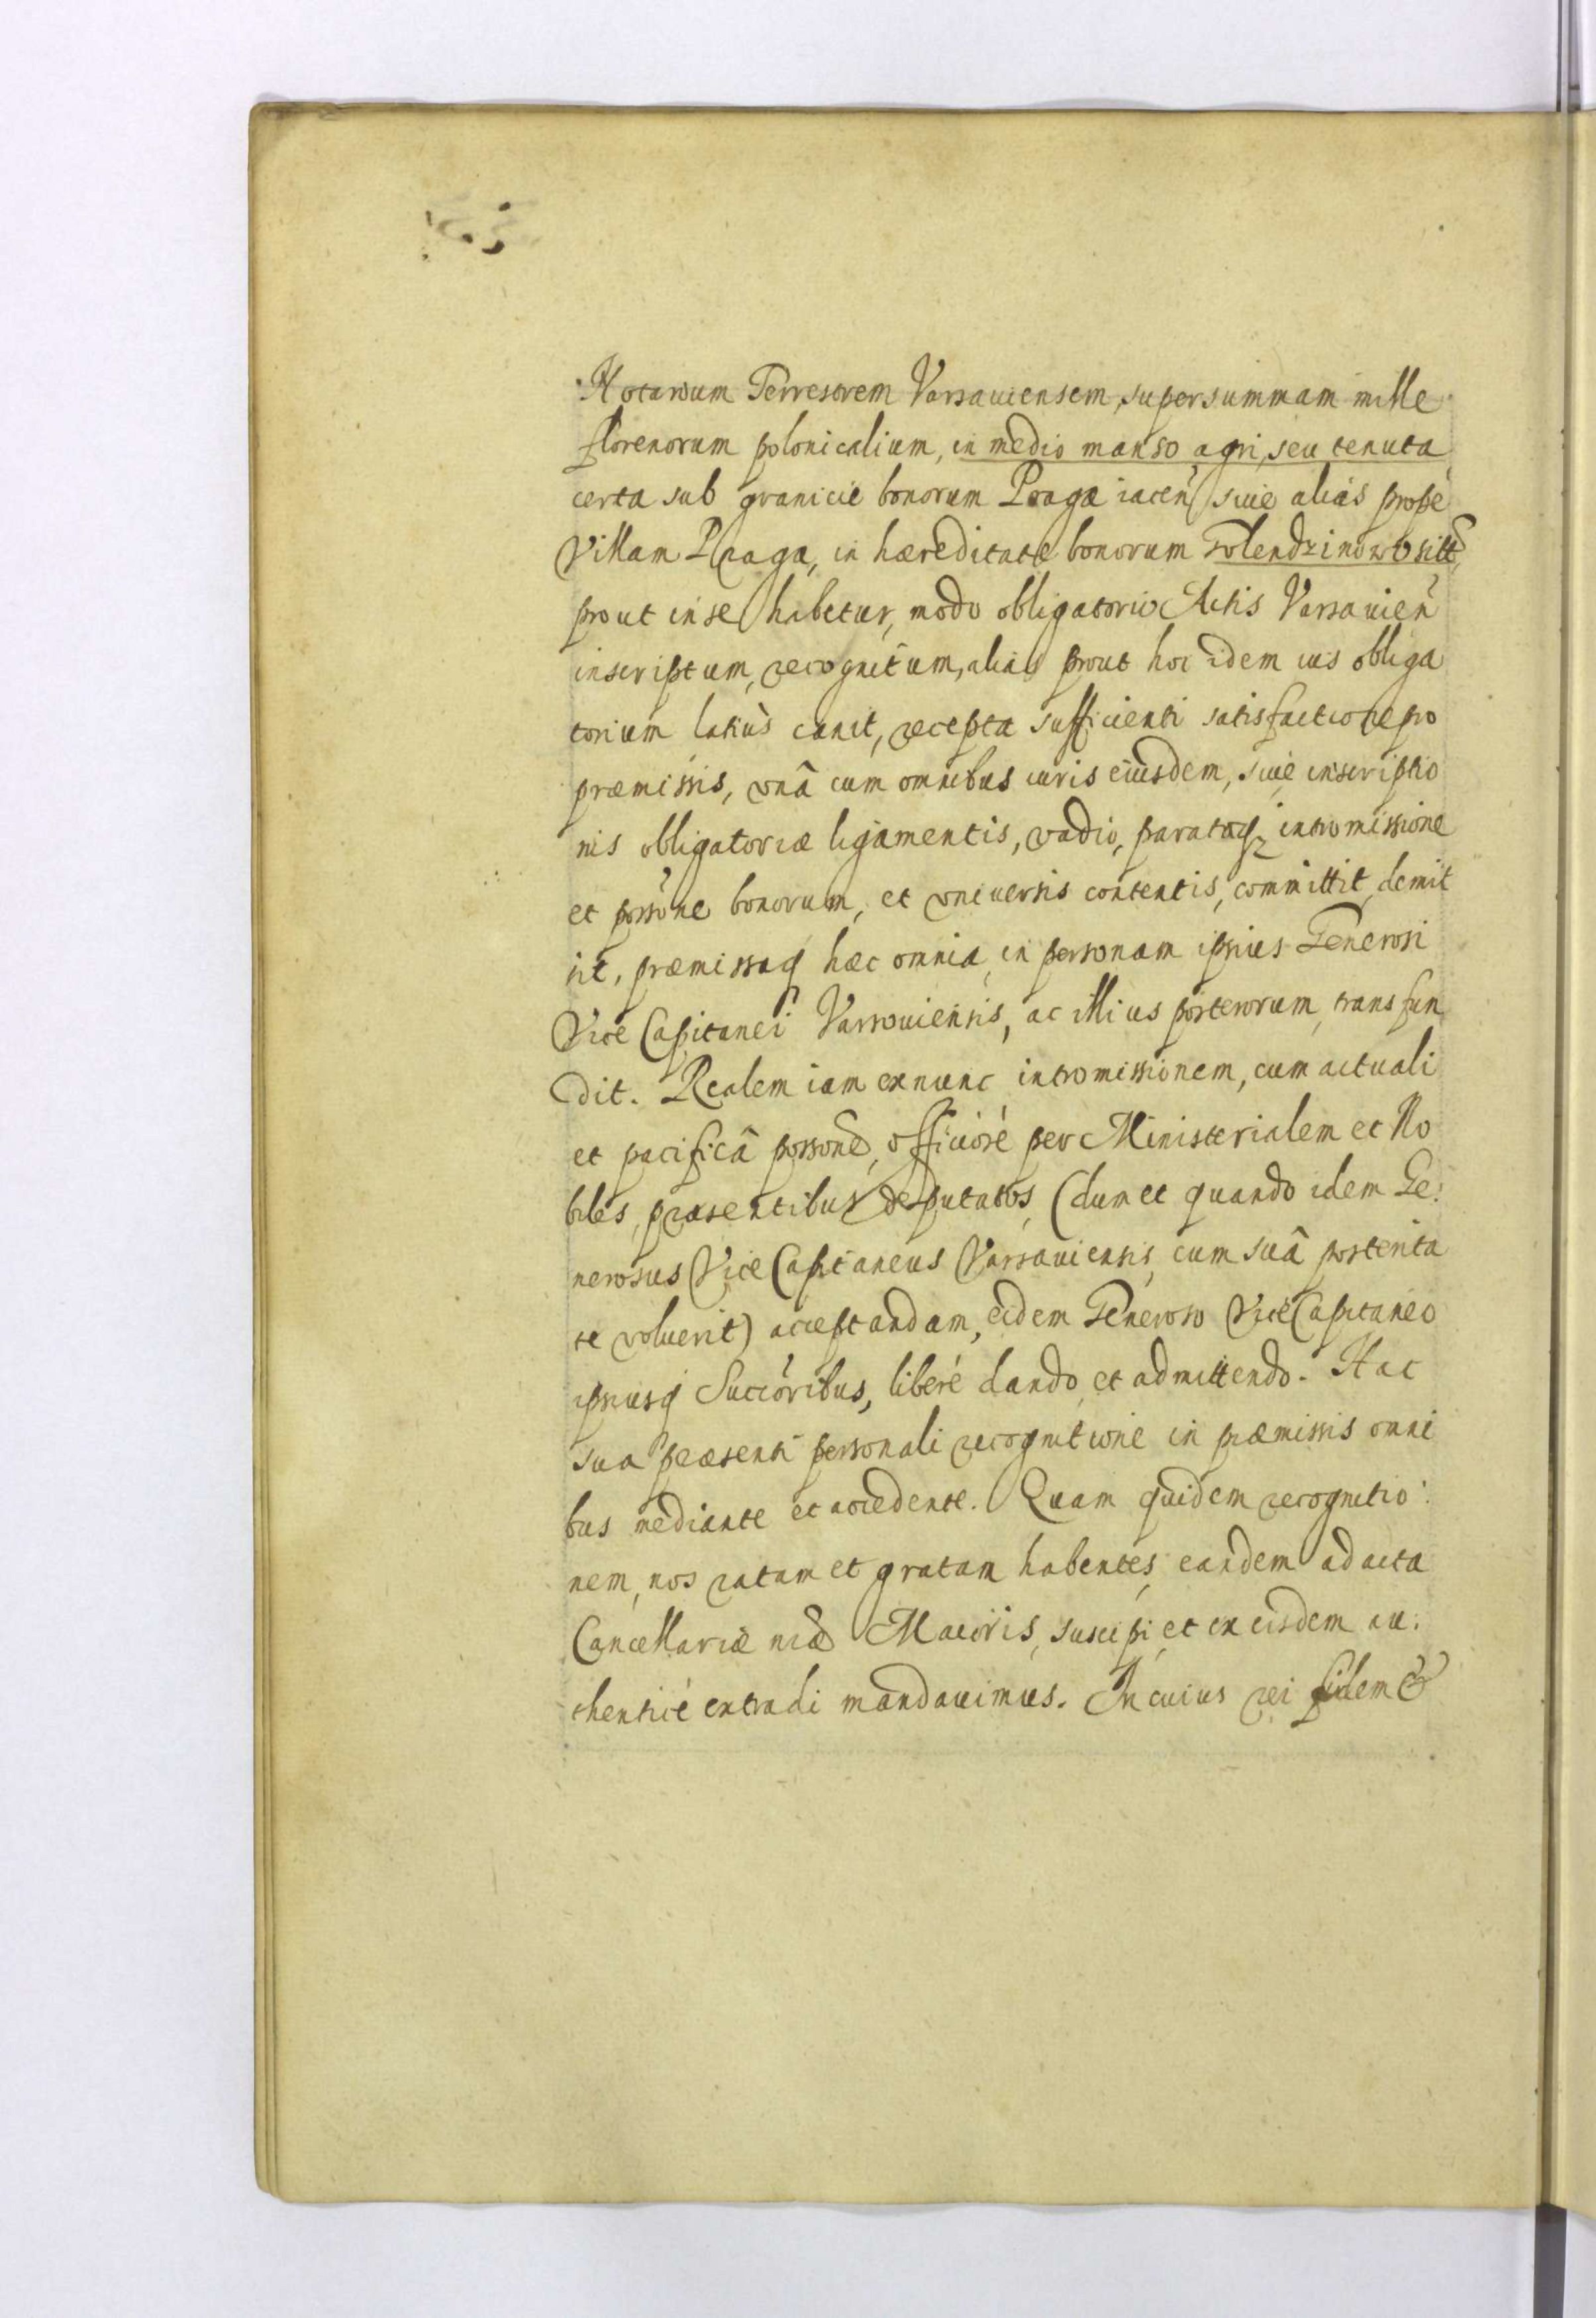 Notarium Terrestrem Varsauiensem, super summam mille
florenorum polonicalium, in medio manso agri, seu tenuta
certa sub granicie bonorum Pragæ iaceñ siue aliàs propè
Villam Praga, in hæreditate bonorum Golendzinowo sitt
prout in se habetur, modo obligatorio Actis Varsauieñ
inscriptum, recognitum, aliàs prout hoc idem ius obliga
torium latiùs canit, recepta sufficienti satisfactione pro
præmissis, vnâ cum omnibus iuris eiusdem, siue inscriptio
nis obligatoriæ ligamentis, vadio, parataq; intromissione
et possone bonorum, et vniuersis contentis, committit, demit
tit, præmissaq hæc omnia, in personam ipsius Generosi
Vice Capitanei Varsouiensis, ac illius posterorum, transfun
dit. Realem iam exnunc intromissionem, cum actuali
et pacificâ possone, officiose per Ministerialem et No
biles, præsentibus deputatos, (dum et quando idem Ge:
nerosus Vice Capitaneus Varsauiensis, cum suâ posterita
te voluerit) acceptandam, eidem Generoso Vice Capitaneo
ipsiusq Succoribus, liberè dando et admittendo. Hac
sua præsenti personali recognitione in præmissis omni
bus mediante et accedente. Quam quidem recognitio:
nem, nos ratam et gratam habentes, eandem ad acta
Cancellariæ nræ Maioris, suscipi, et ex eisdem au:
thenticè extradi mandauimus. In cuius rei fidem &